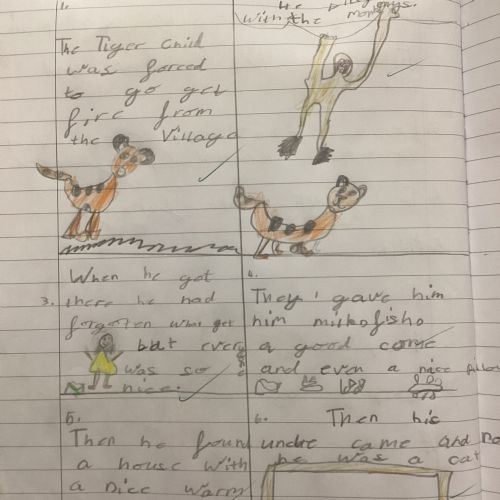 1.
The Tiger Child
was forced
to go get
fire from
the Village
He
with the
monkeys.
3.
When he got
there he had
forgoten what get
but everyone
was so
nice.
4.
They gave him
him milk, fish,
a good
and even a nice
5.
Then he found
a house with
a nice warm
6.
Then his
uncle came and
he was a cat